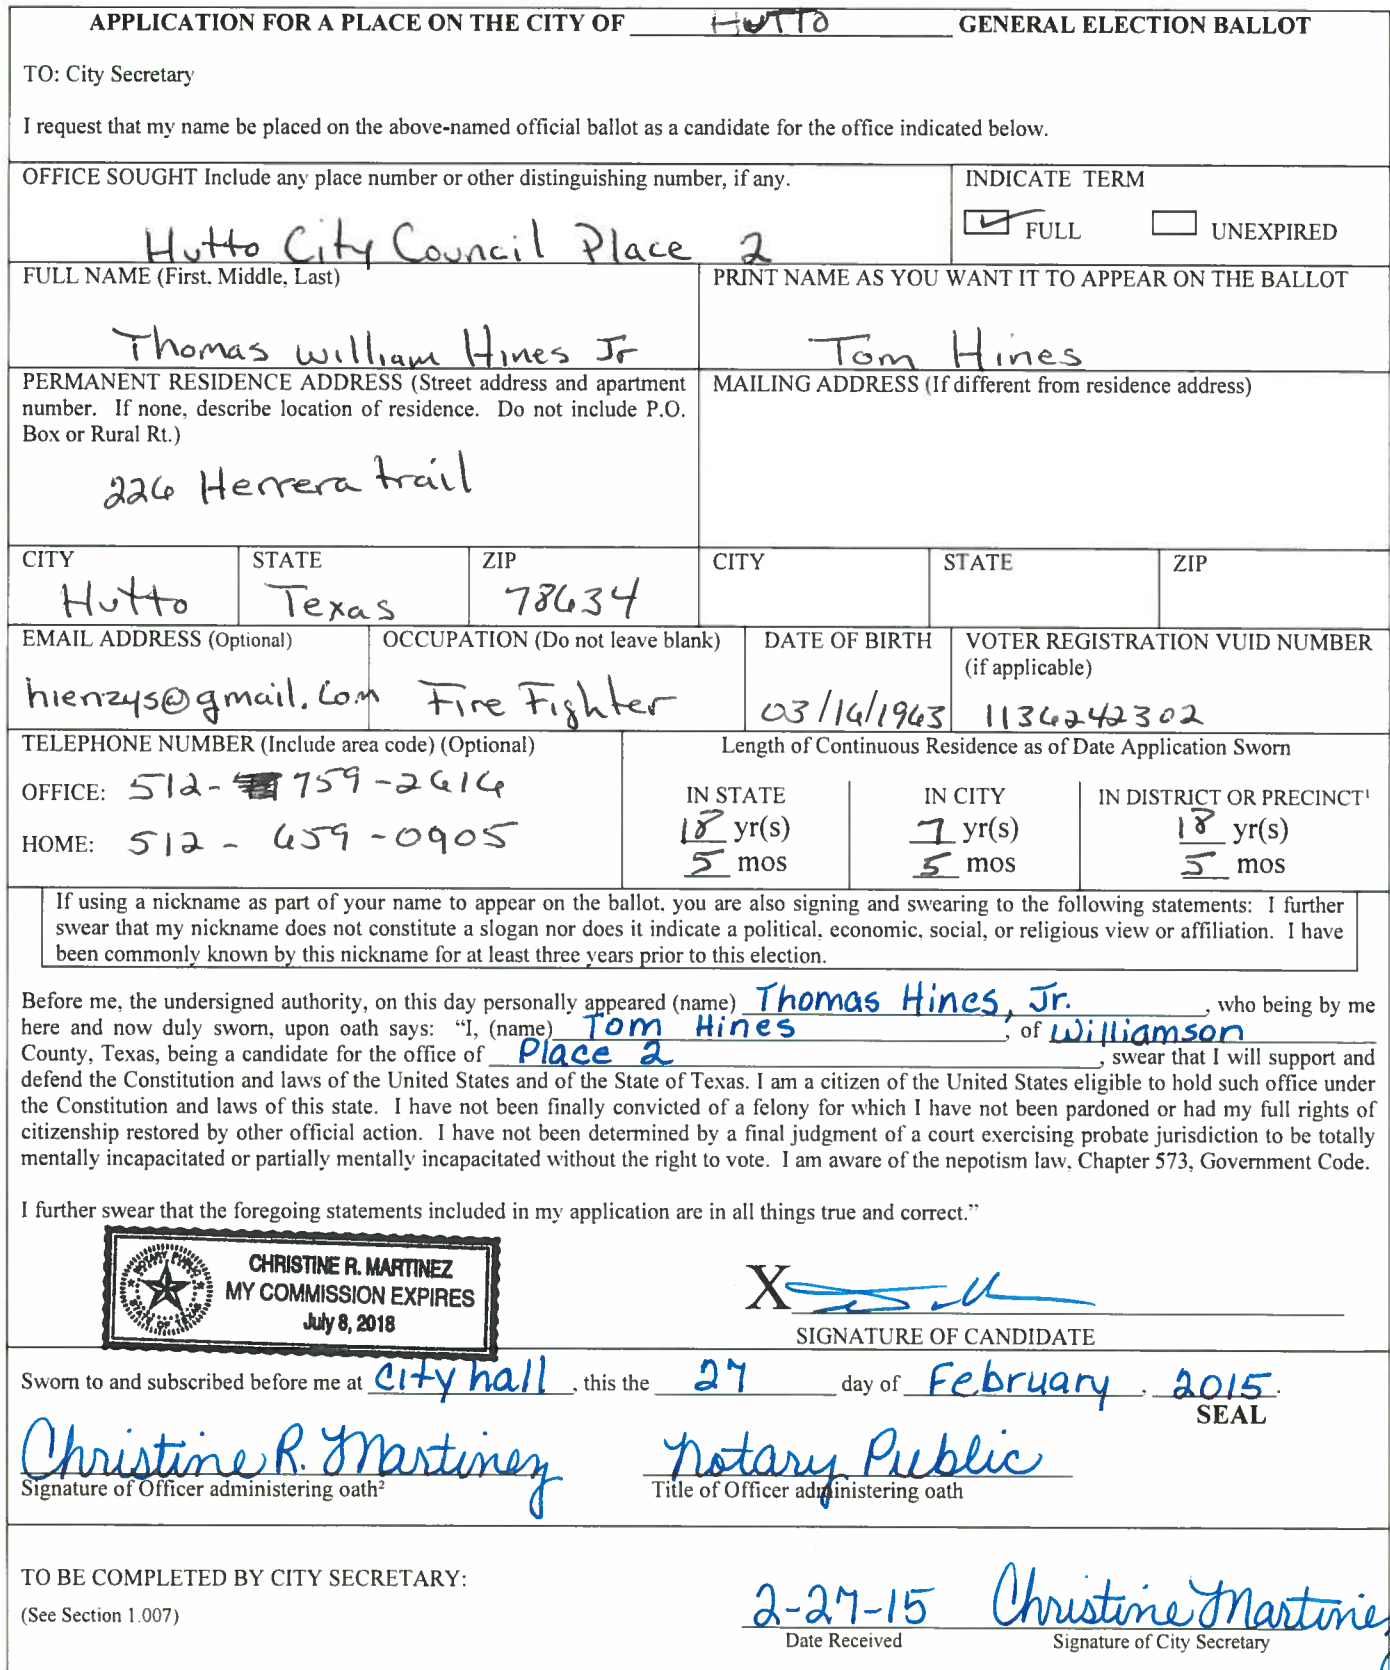 APPLICATION FOR A PLACE ON THE CITY OF HUTTO GENERAL ELECTION BALLOT
TO: City Secretary
I request that my name be placed on the above-named official ballot as a candidate for the office indicated below.
OFFICE SOUGHT Include any place number or other distinguishing number, if any.
Hutto City Council Place 2
INDICATE TERM
FULL UNEXPIRED
FULL NAME (First, Middle, Last)
Thomas William Hines Jr
PRINT NAME AS YOU WANT IT TO APPEAR ON THE BALLOT
Tom Hines
PERMANENT RESIDENCE ADDRESS (Street address and apartment
number. If none, describe location of residence. Do not include P.O.
Box or Rural Rt.)
226 Herrera trail
MAILING ADDRESS (If different from residence address)
CITY STATE ZIP CITY STATE ZIP
Hutto Texas 78634
EMAIL ADDRESS (Optional)
hienzys@gmail.com
OCCUPATION (Do not leave blank)
Fire Fighter
DATE OF BIRTH
03/16/1963
VOTER REGISTRATION VUID NUMBER
(if applicable)
1136242302
TELEPHONE NUMBER (Include area code) (Optional)
OFFICE: 512-759-2616
HOME: 512-659-0905
Length of Continuous Residence as of Date Application Sworn
IN STATE IN CITY IN DISTRICT OR PRECINCT¹
18 yr(s) 7 yr(s) 18 yr(s)
5 mos 5 mos 5 mos
If using a nickname as part of your name to appear on the ballot, you are also signing and swearing to the following statements: I further
swear that my nickname does not constitute a slogan nor does it indicate a political, economic, social, or religious view or affiliation. I have
been commonly known by this nickname for at least three years prior to this election.
Before me, the undersigned authority, on this day personally appeared (name) Thomas Hines, Jr., who being by me
here and now duly sworn, upon oath says: “I, (name) Tom Hines, of Williamson
County, Texas, being a candidate for the office of Place 2, swear that I will support and
defend the Constitution and laws of the United States and of the State of Texas. I am a citizen of the United States eligible to hold such office under
the Constitution and laws of this state. I have not been finally convicted of a felony for which I have not been pardoned or had my full rights of
citizenship restored by other official action. I have not been determined by a final judgment of a court exercising probate jurisdiction to be totally
mentally incapacitated or partially mentally incapacitated without the right to vote. I am aware of the nepotism law, Chapter 573, Government Code.
I further swear that the foregoing statements included in my application are in all things true and correct.”
CHRISTINE R. MARTINEZ
MY COMMISSION EXPIRES
July 8, 2018
X
SIGNATURE OF CANDIDATE
Sworn to and subscribed before me at City hall, this the 27 day of February, 2015.
SEAL
Christine R. Martinez Notary Public
Signature of Officer administering oath² Title of Officer administering oath
TO BE COMPLETED BY CITY SECRETARY:
(See Section 1.007)
2-27-15 Christine Martinez
Date Received Signature of City Secretary